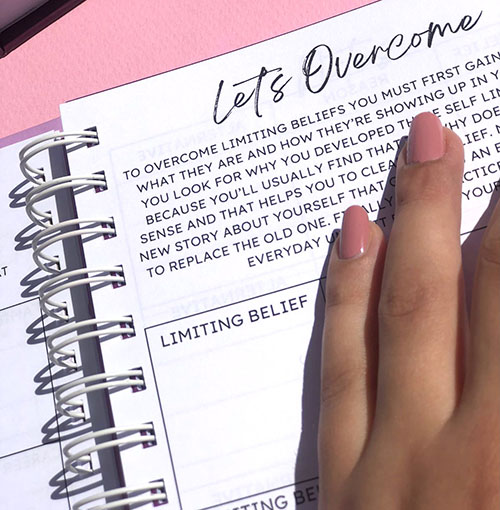 Let's Overcome
TO OVERCOME LIMITING BELIEFS YOU MUST FIRST GAIN
WHAT THEY ARE AND HOW THEY'RE SHOWING UP IN
YOU LOOK FOR WHY YOU DEVELOPED SELF
BECAUSE YOU'LL USUALLY FIND THAT
SENSE AND THAT HELPS YOU TO
NEW STORY ABOUT YOURSELF THAT
TO REPLACE THE OLD ONE.
EVERYDAY
LIMITING BELIEF
LIMITING